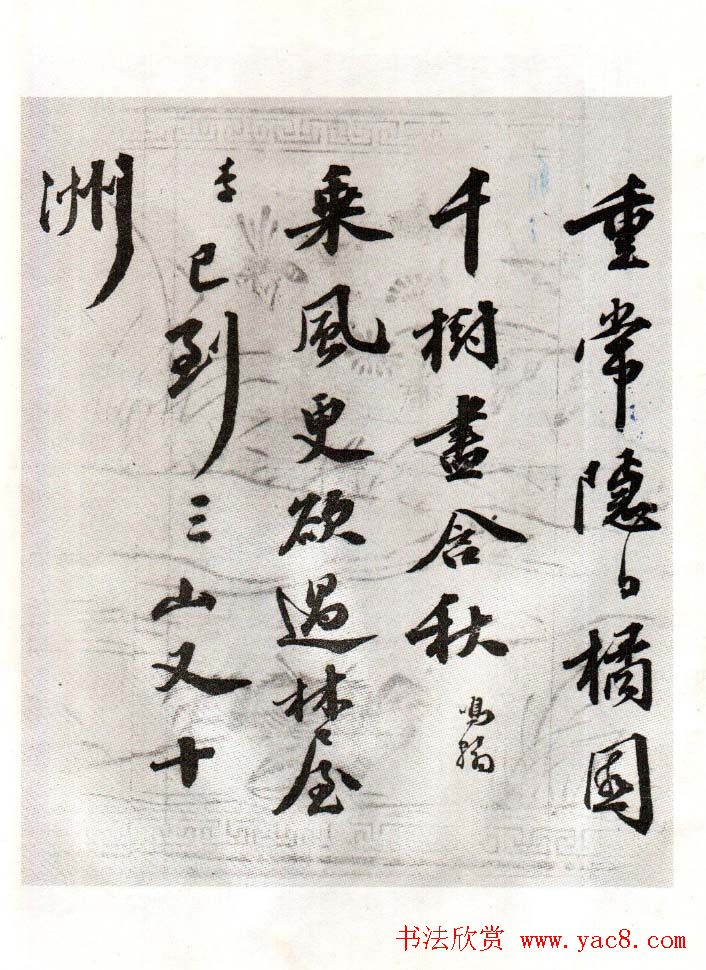 重常隱日橘園
千樹盡含秋
乘風更欲過林屋
已到三山又十
洲
书法欣赏 www.yac8.com